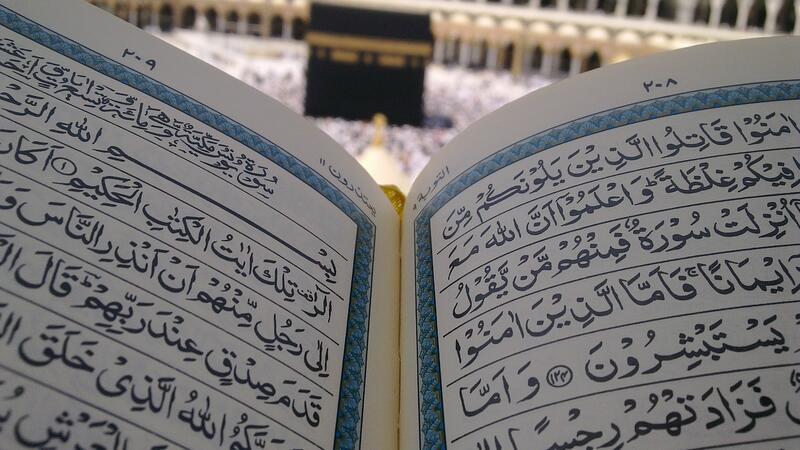 ٢٠٨
التوبة ٩
اٰمَنُوْا قَاتِلُوا الَّذِيْنَ يَلُوْنَكُمْ مِّنَ
فِيْكُمْ غِلْظَةً ؕ وَاعْلَمُوْۤا اَنَّ اللّٰهَ مَعَ
اُنْزِلَتْ سُوْرَةٌ فَمِنْهُمْ مَّنْ يَّقُوْلُ
اِيْمَانًا ۚ فَاَمَّا الَّذِيْنَ اٰمَنُوْا
يَسْتَبْشِرُوْنَ ﴿١٢٤﴾ وَاَمَّا
فَزَادَتْهُمْ رِجْسًا
٢٠٩
يعتذرون ١١
بِسْمِ اللّٰهِ الرَّحْ
الٓرٰ ۫ تِلْكَ اٰيٰتُ الْكِتٰبِ الْحَكِيْمِ ﴿١﴾ اَكَانَ
لِلنَّاسِ اِلٰى رَجُلٍ مِّنْهُمْ اَنْ اَنْذِرِ النَّاسَ وَ
قَدَمَ صِدْقٍ عِنْدَ رَبِّهِمْ ؕ قَالَ
رَبَّكُمُ اللّٰهُ الَّذِيْ خَلَقَ
الْعَرْشِ